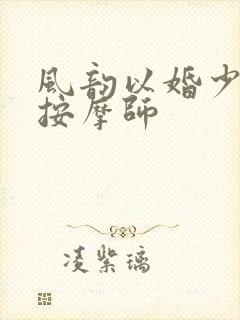 風韵以婚少
按摩師
凌紫璃